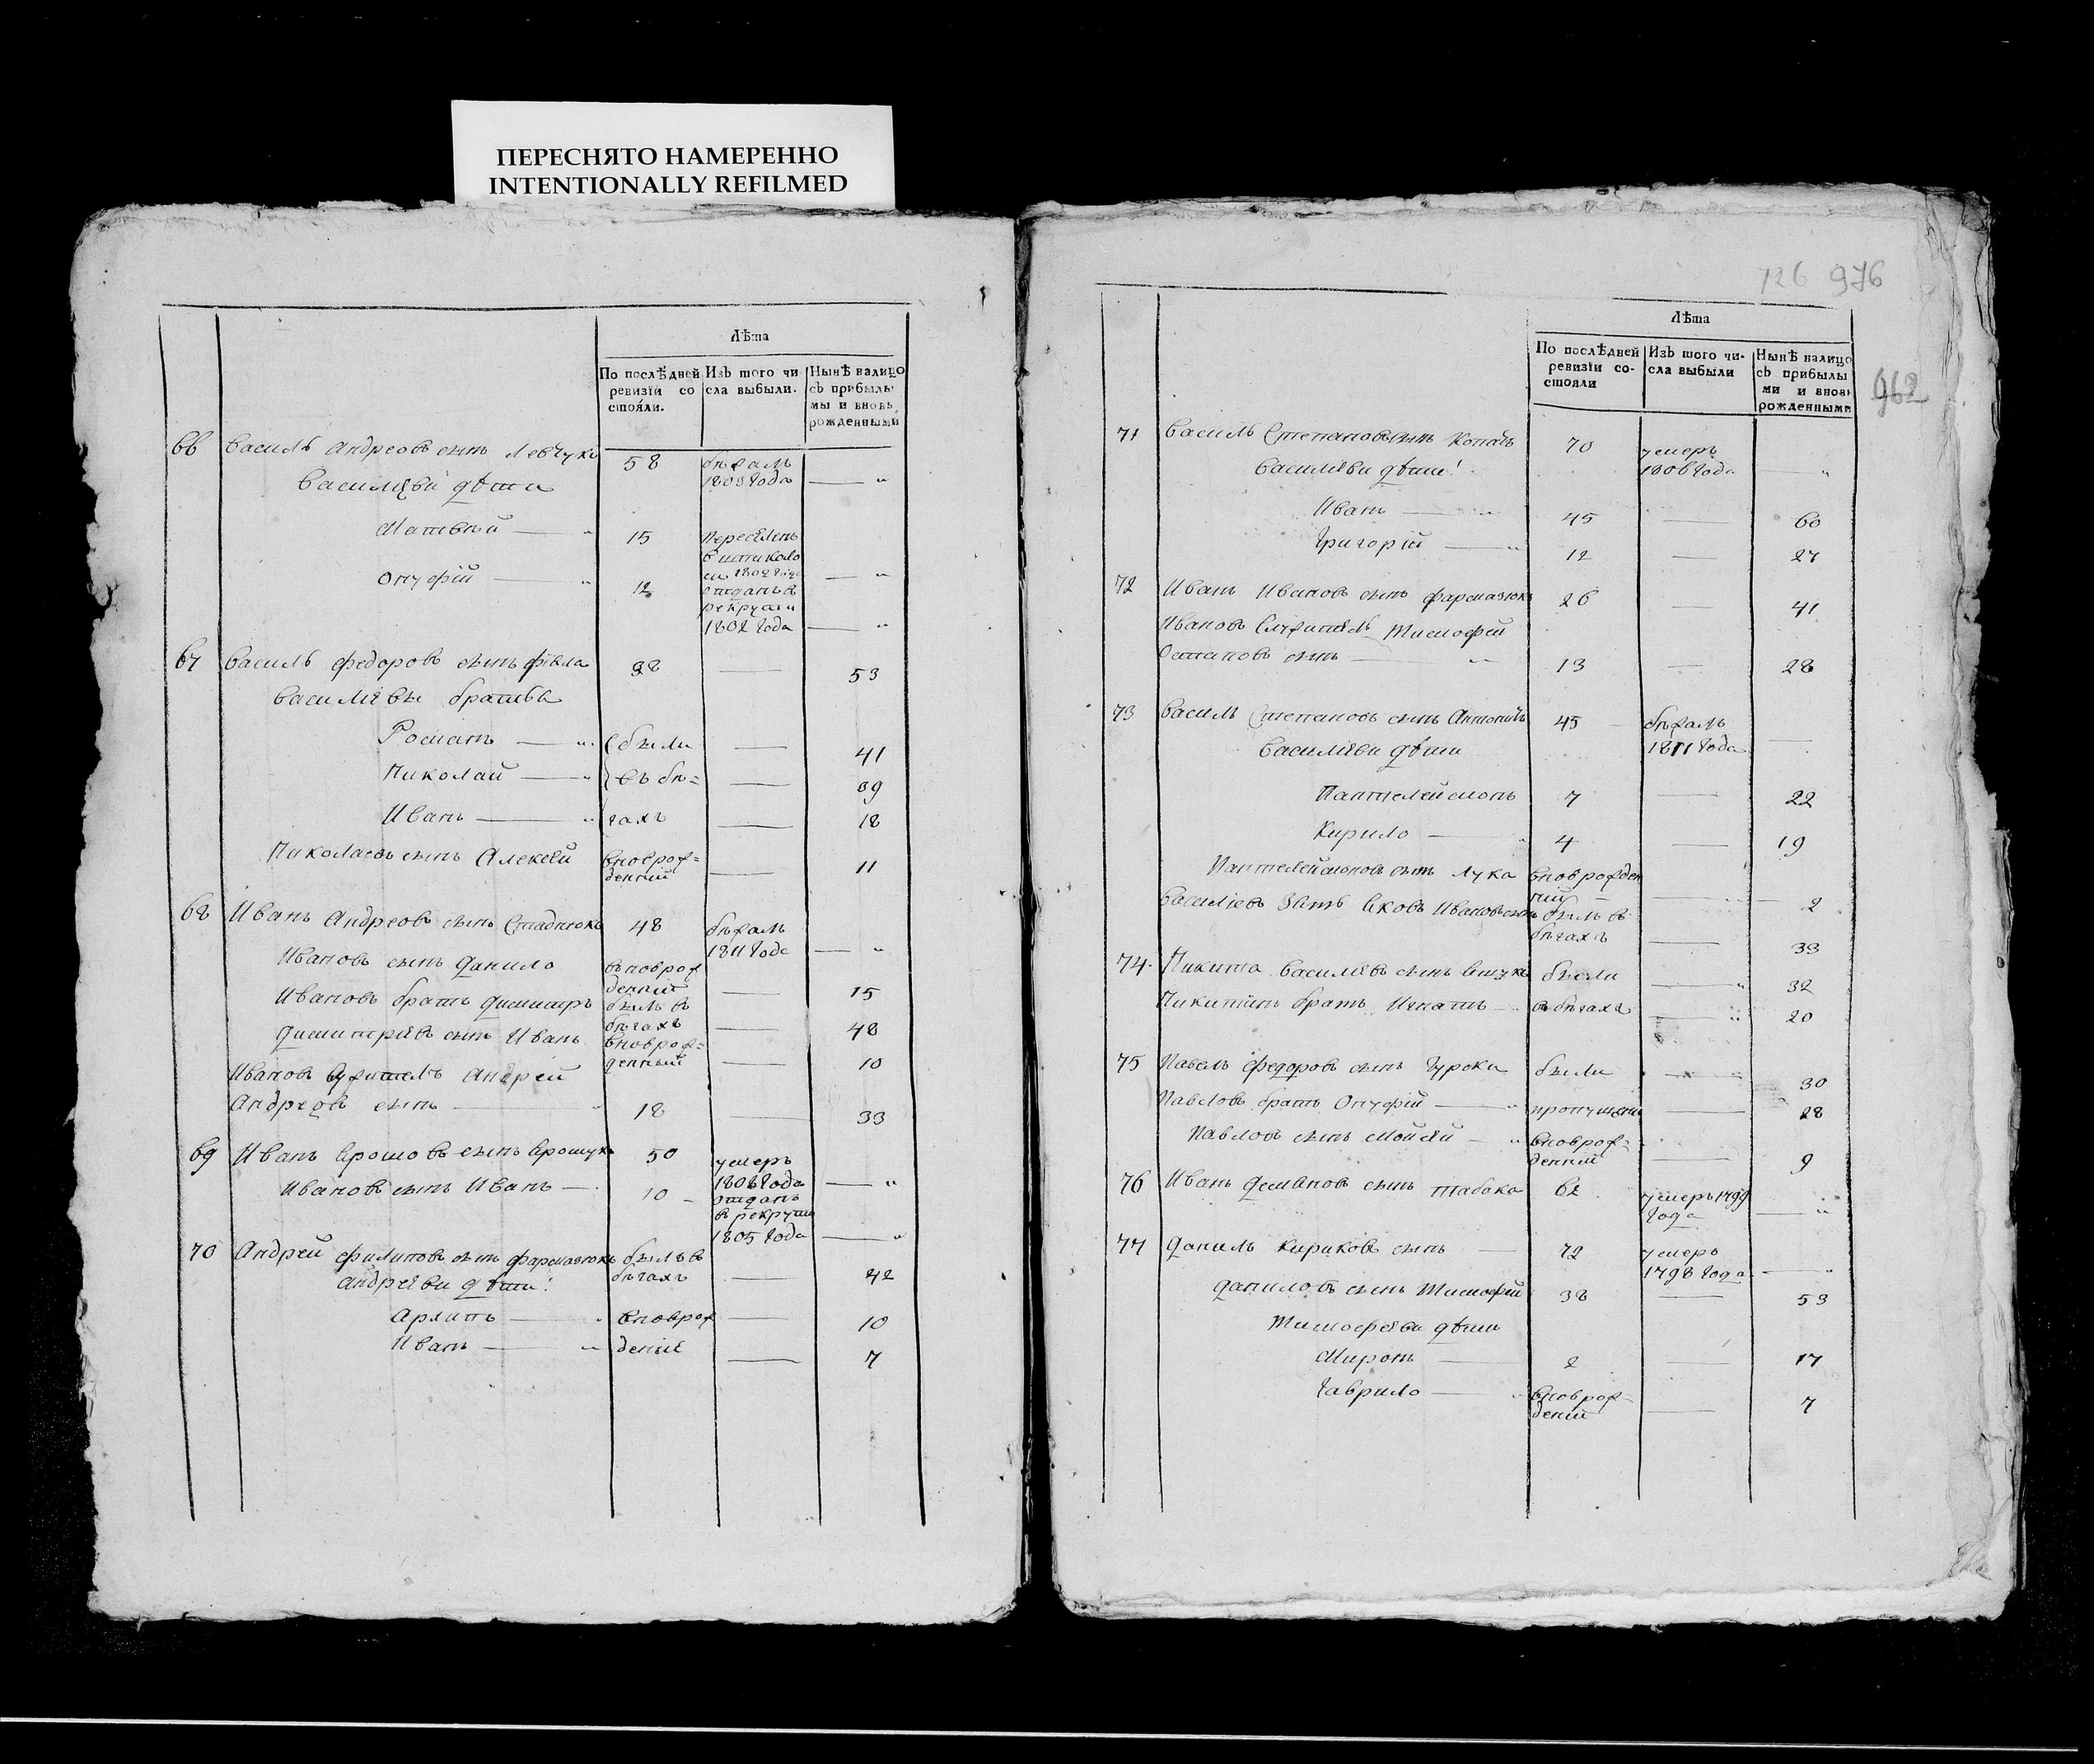 ПЕРЕСНЯТО НАМЕРЕННО
INTENTIONALLY REFILMED
Лѣта
По послѣдней ревизіи состояли.
Изъ того числа выбыли.
Нынѣ налицо съ прибылыми и вновь рожденными
66 Василь Андреовъ сынъ Левчукъ 58 бѣжалъ 1803 года — "
Василѣви дѣти
Матвѣй — " 15 переселенъ 1802 года
Онуфрій — " 12 отданъ в рекрути 1802 года — "
67 Василь Федоровъ сынъ 38 — 53
Василѣви братья
Романъ — " были — 41
Николай — " въ бѣ= — 39
Иванъ — " гахъ — 18
Николаевъ сынъ Алексѣй вноврож=денній — 11
68 Иванъ Андреовъ сынъ Стаднюкъ 48 бѣжалъ 1811 года — "
Ивановъ сынъ Данило вноврожденній — 15
Ивановъ братъ Димитръ былъ в бѣгахъ — 48
Димитріевъ сынъ Иванъ вноврож=денный — 10
Ивановъ Служитель Андрей
Андреовъ сынъ — 18 — 33
69 Иванъ Ярошовъ сынъ Ярошукъ 50 умеръ 1808 года — "
Ивановъ сынъ Иванъ — 10 отданъ в рекрути 1805 года — "
70 Андрей Филиповъ сынъ Фармазюкъ былъ в бѣгахъ — 42
Андрѣеви дѣти:
Архипъ — " вноврож — 10
Иванъ — " деніе — 7
126 976
962
Лѣта
По послѣдней ревизіи состояли
Изъ того числа выбыли
Нынѣ налицо съ прибылыми и вновь рожденными
71 Василь Степановъ сынъ Копачъ 70 умеръ 1806 года "
Василѣви дѣти:
Иванъ — " 45 — 60
Григорій — " 12 — 27
72 Иванъ Ивановъ сынъ Фармазюкъ 26 — 41
Ивановъ Служитель Тимофей
Остаповъ сынъ — " 13 — 28
73 Василь Степановъ сынъ 45 бѣжалъ 1811 года —
Василѣви дѣти
Пантелеймонъ 7 — 22
Кирило — 4 — 19
Пантелеймоновъ сынъ Лука вноврожденній — 2
Василіевъ Зять Яковъ Ивановъ сынъ былъ в бѣгахъ — 33
74 Никита Василѣвъ сынъ были — " 32
Никитинъ братъ Игнатъ — въ бѣгахъ — " 20
75 Павелъ Федоровъ сынъ Чурока были — 30
Павловъ братъ Онуфрій — " пропущени — 28
Павловъ сынъ Мойсей — " вноврож=денний — 9
76 Иванъ Демяновъ сынъ Табака 62 умеръ 1799 года — "
77 Данилъ Кириковъ сынъ — 72 умеръ 1798 года — "
Даниловъ сынъ Тимофѣй 38 — 53
Тимофѣеви дѣти
Миронъ — 2 — 17
Гаврило — " вноврож=деній — 7